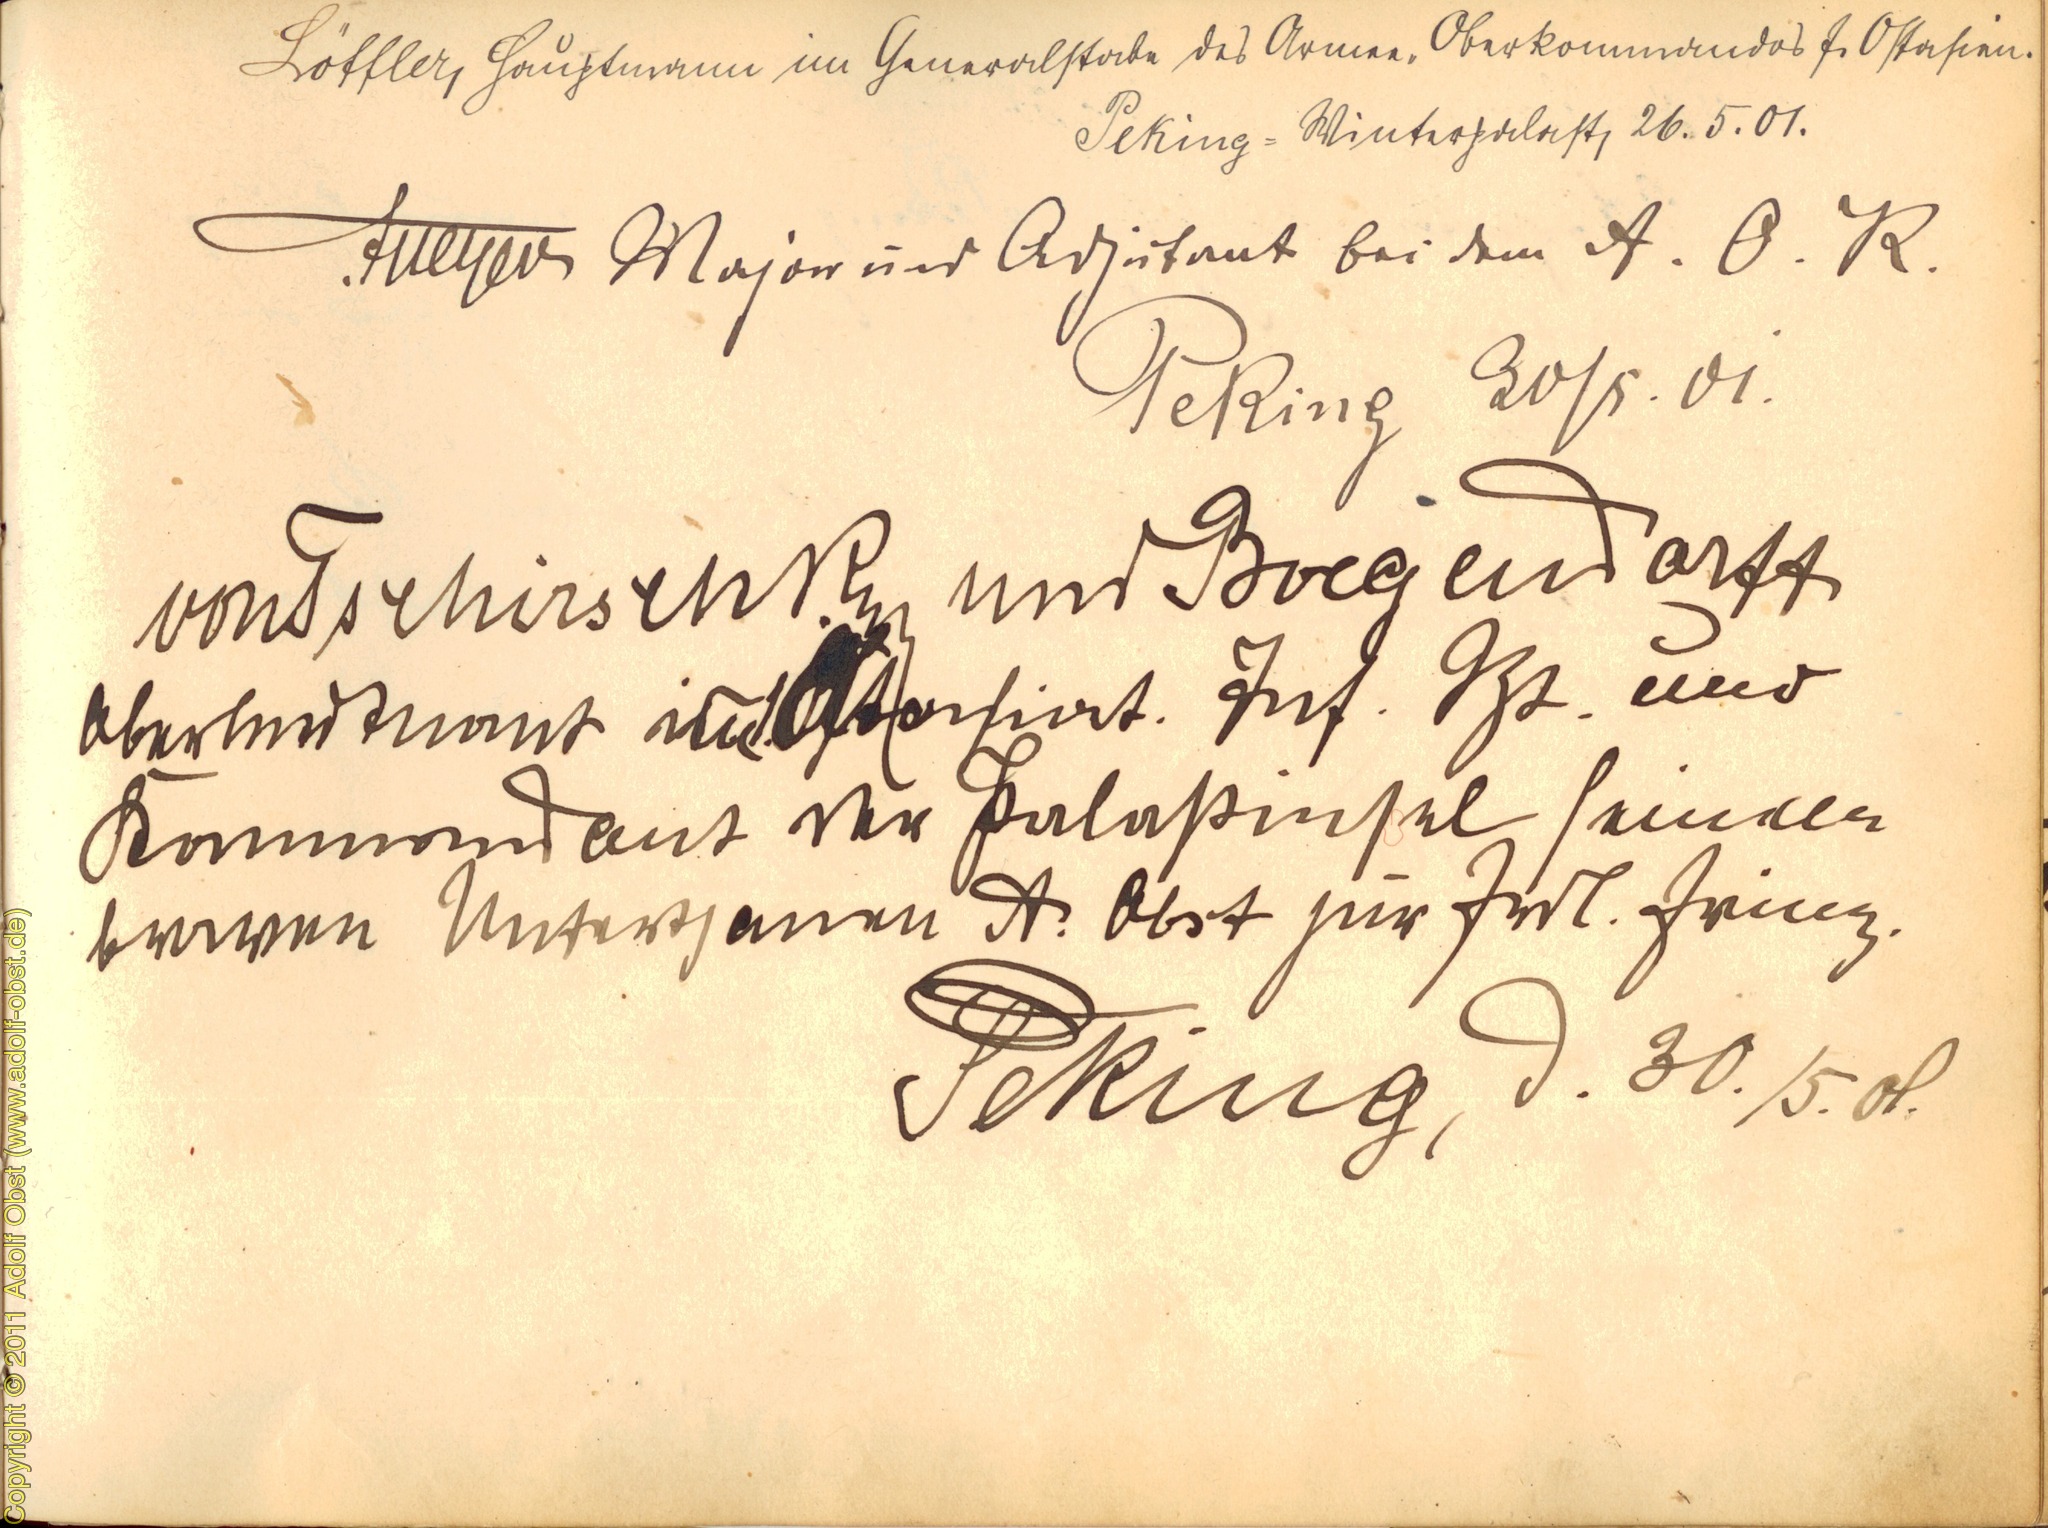 Löffler, Hauptmann im Generalstabe des Armee-Oberkommandos f. Ostasien.
Peking-Winterpalast, 26.5.01.
Meyer Major und Adjutant bei dem A. O. K.
Peking 30/5. 01.
von Tschirschky und Boegendorff
Oberleutnant im Ostasiat. Inf. Rgt. und
Kommandant der Palastinsel seinem
braven Unterthanen A. Obst zur frdl. Erinng.
Peking, d. 30./5. 01.
Copyright © 2011 Adolf Obst (www.adolf-obst.de)